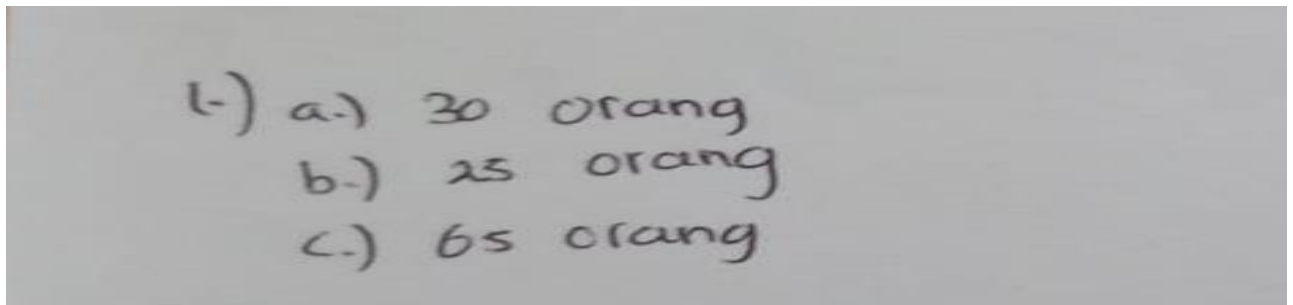 1.) a.) 30 orang
b.) 25 orang
c.) 65 orang